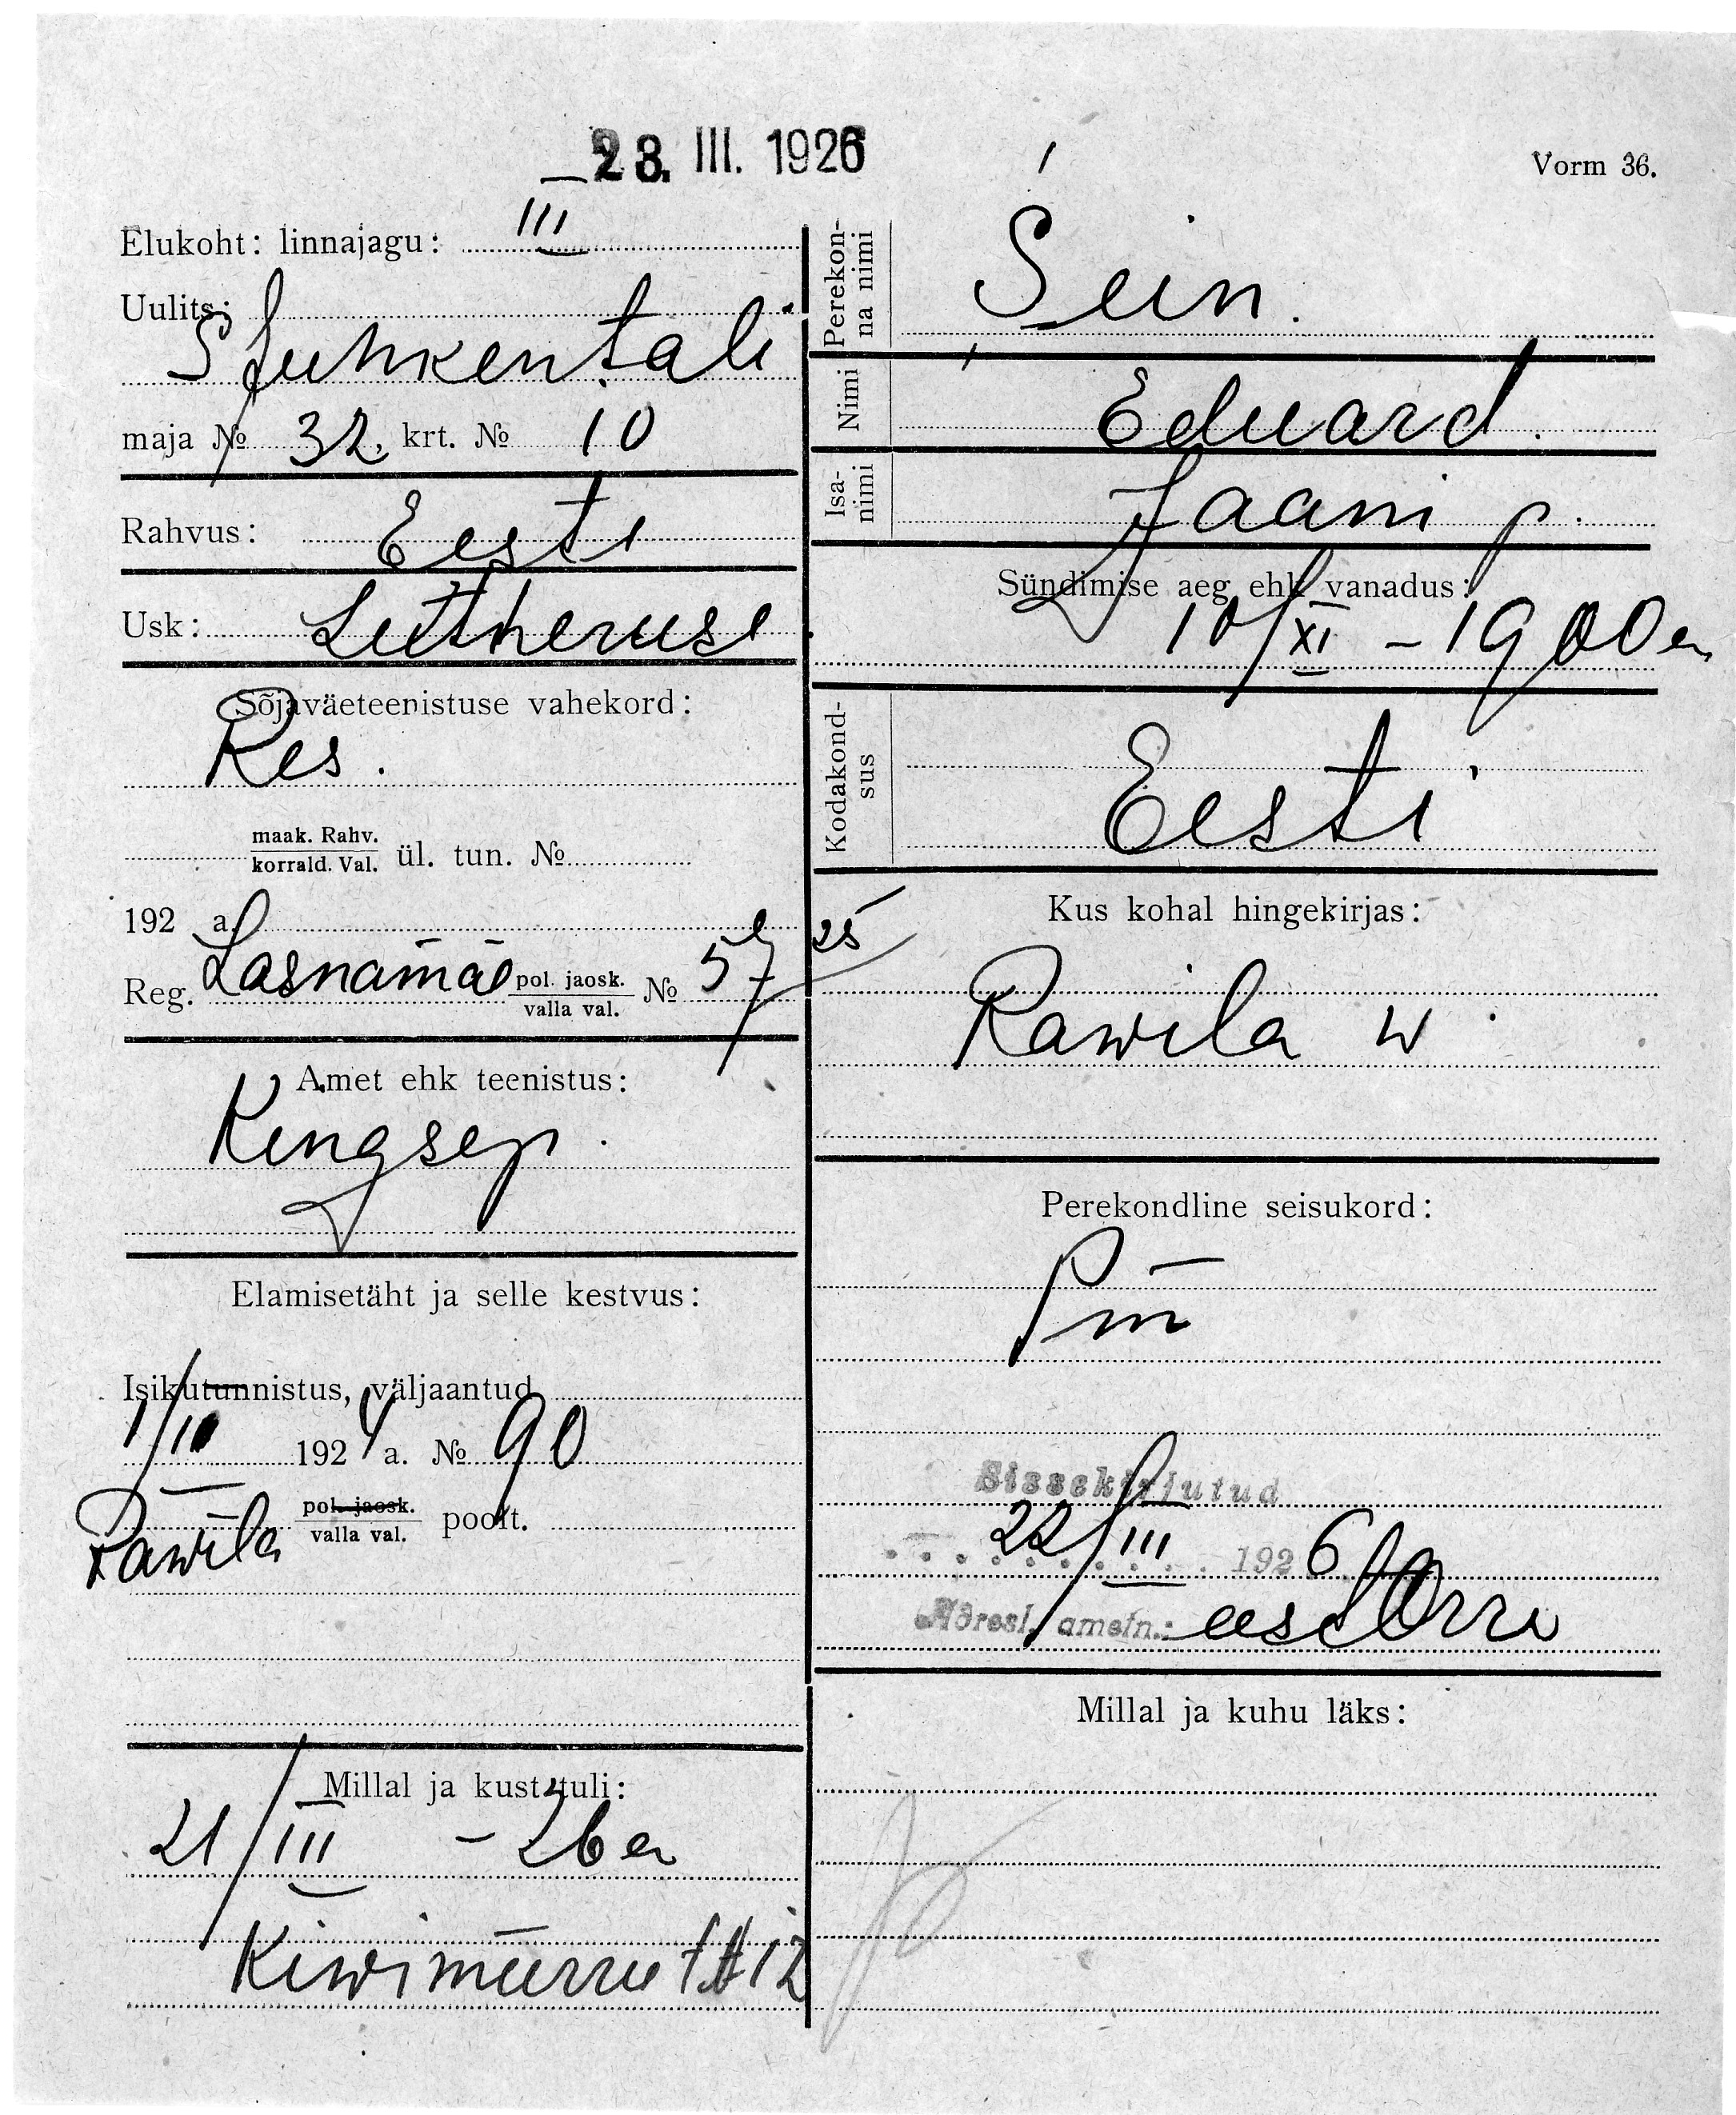 23. III. 1926
Vorm 36.
Elukoht: linnajagu: III
Uulits:
Stuhkentali
maja № 32. krt. № 10
Rahvus: Eesti
Usk: Lutheruse
Sõjaväeteenistuse vahekord:
Res.
maak. Rahv.
korrald. Val. ül. tun. №
192 a.
Reg. Lasnamäe pol. jaosk. valla val. № 57 25
Amet ehk teenistus:
Kingsep.
Elamisetäht ja selle kestvus:
Isikutunnistus, väljaantud
192 a. № 90
Rawila pol. jaosk. valla val. poolt.
Millal ja kust tuli:
21/III - 26 a
Kiwimurru 12
Perekonna nimi
Sein.
Nimi
Eduard.
Isanimi
Jaani p.
Sündimise aeg ehk vanadus:
10/XI - 1900 a
Kodakondsus
Eesti
Kus kohal hingekirjas:
Rawila w
Perekondline seisukord:
Sissekirjutud
22/III 1926
Adresl. ametn.:
Millal ja kuhu läks: